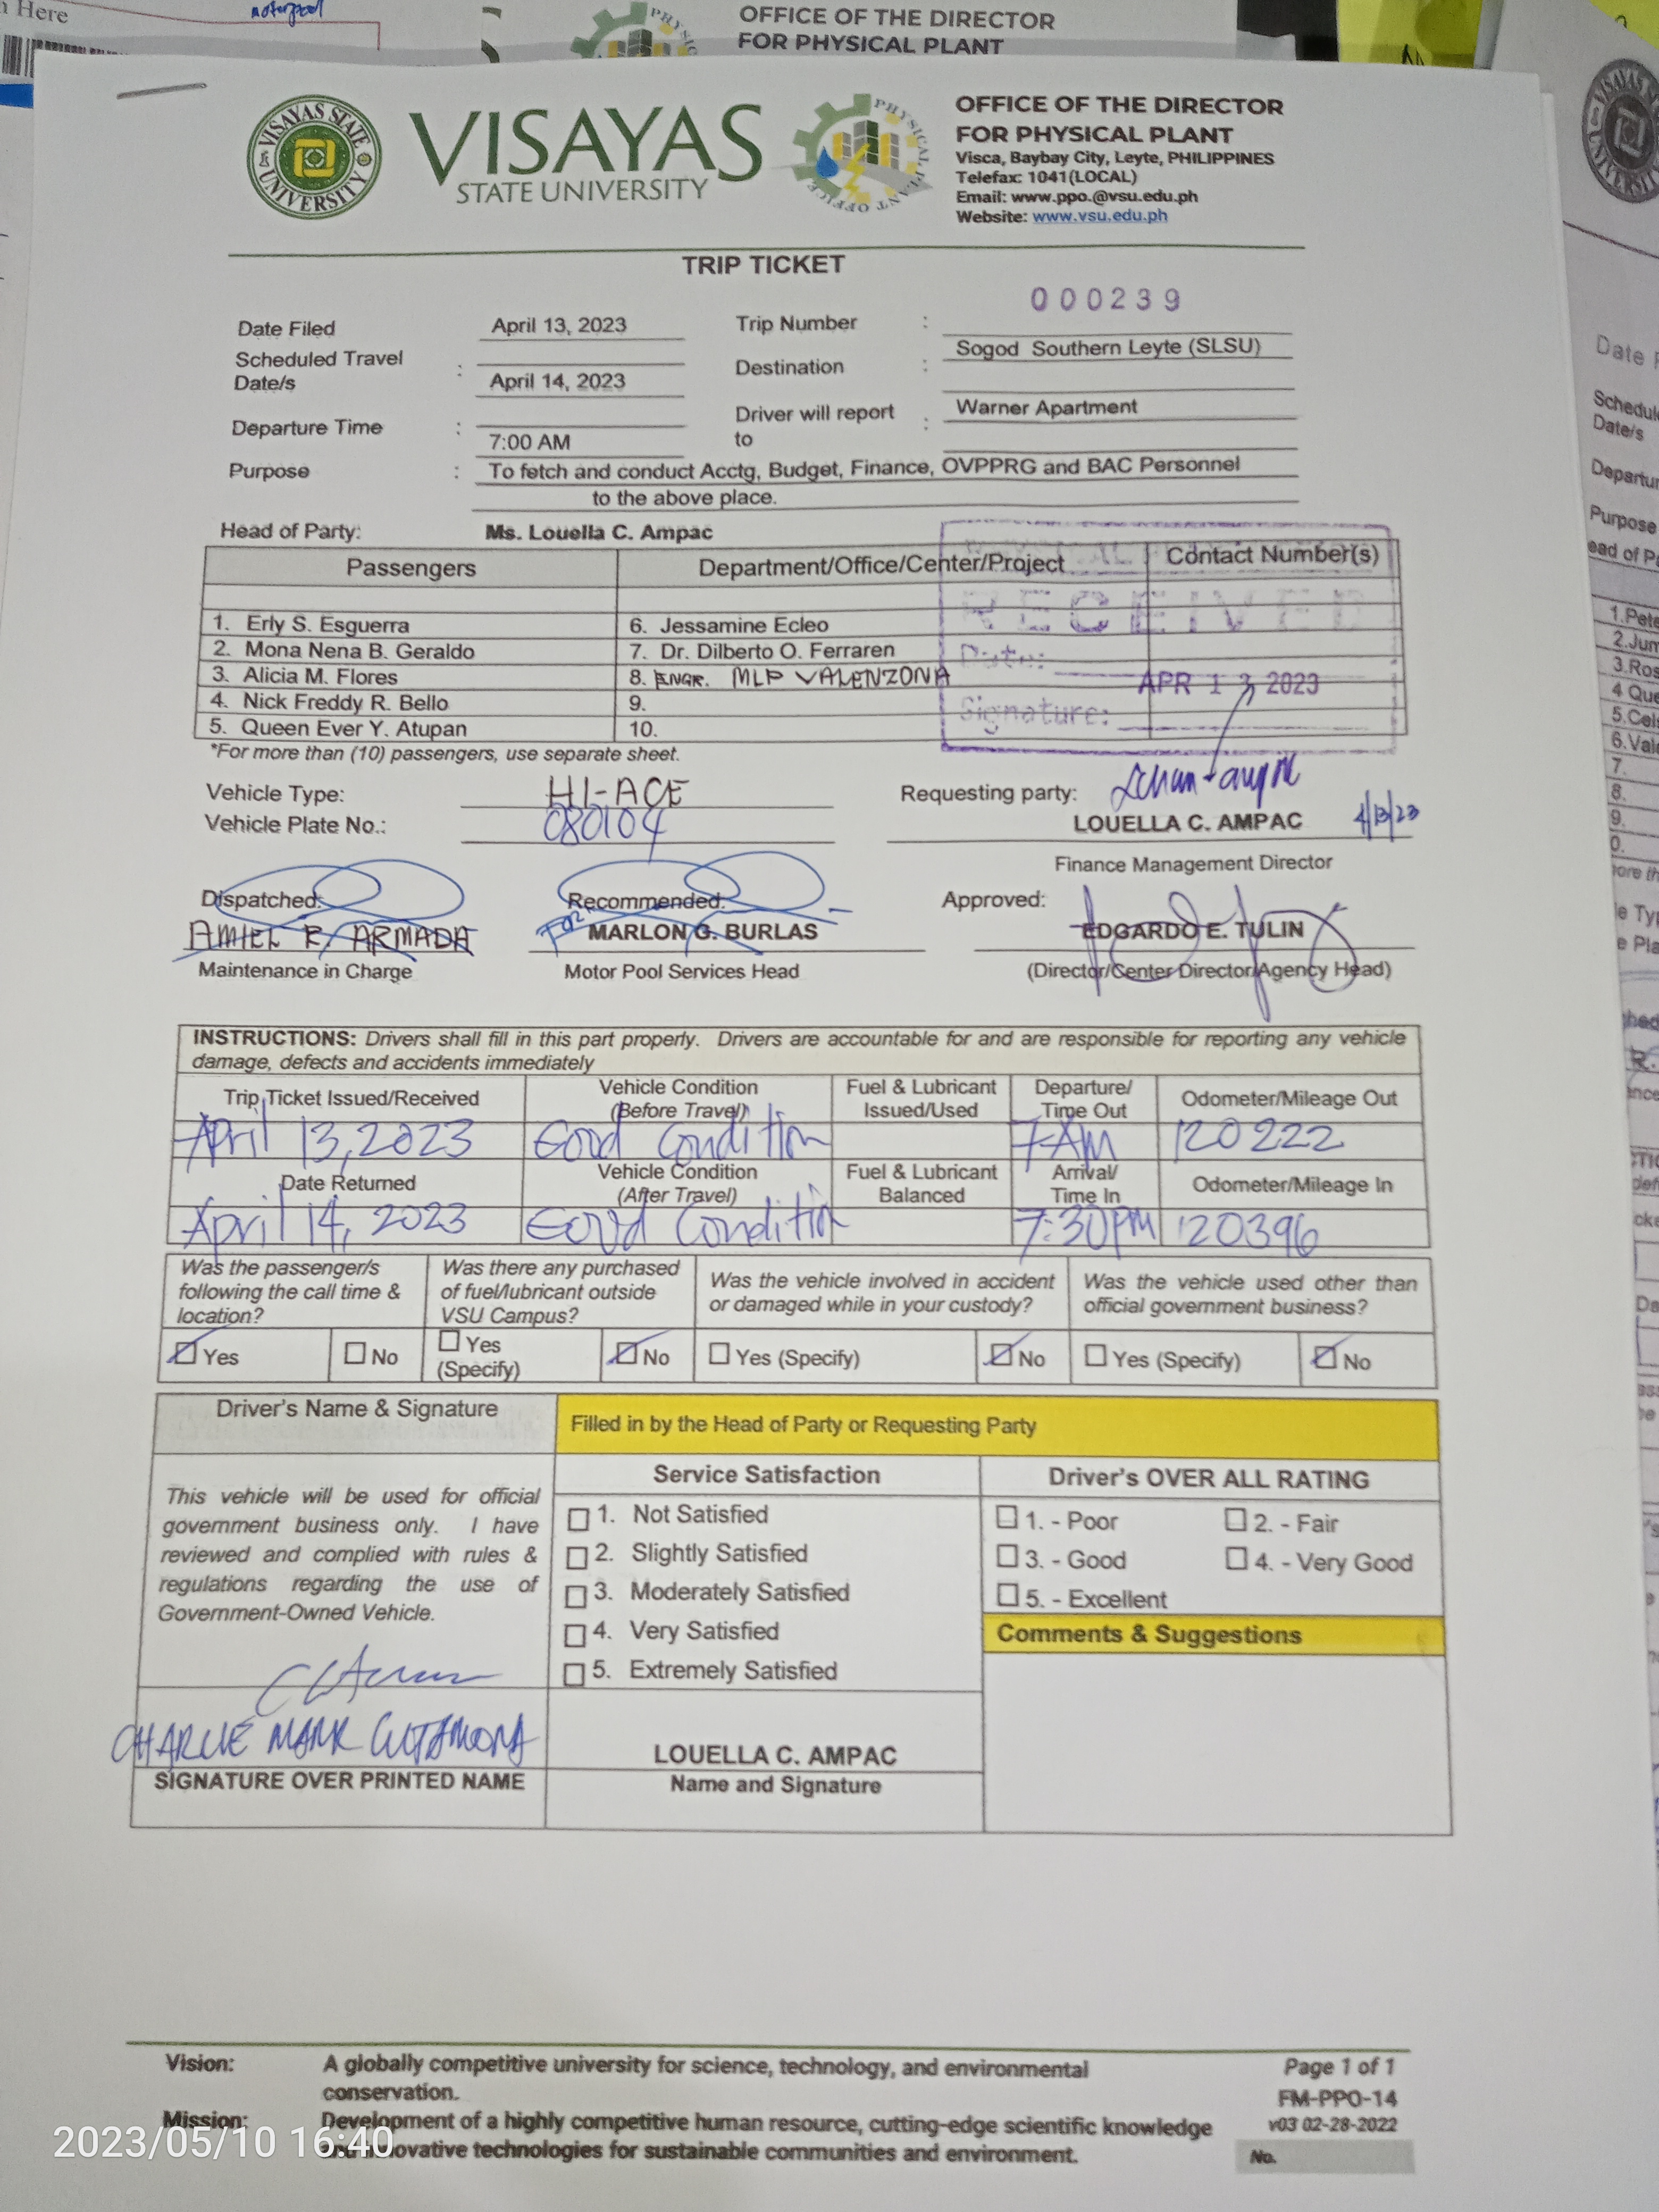 n Here
motorpool
OFFICE OF THE DIRECTOR
FOR PHYSICAL PLANT
VISAYAS STATE UNIVERSITY
VISAYAS
STATE UNIVERSITY
PHYSICAL PLANT OFFICE
OFFICE OF THE DIRECTOR
FOR PHYSICAL PLANT
Visca, Baybay City, Leyte, PHILIPPINES
Telefax: 1041(LOCAL)
Email: www.ppo.@vsu.edu.ph
Website: www.vsu.edu.ph
TRIP TICKET
000239
Date Filed April 13, 2023 Trip Number :
Scheduled Travel Date/s : April 14, 2023 Destination : Sogod Southern Leyte (SLSU)
Departure Time : 7:00 AM Driver will report to : Warner Apartment
Purpose : To fetch and conduct Acctg, Budget, Finance, OVPPRG and BAC Personnel
to the above place.
Head of Party: Ms. Louella C. Ampac
Passengers Department/Office/Center/Project Contact Number(s)
1. Erly S. Esguerra 6. Jessamine Ecleo
2. Mona Nena B. Geraldo 7. Dr. Dilberto O. Ferraren
3. Alicia M. Flores 8. ENGR. MLP VALENZONA
4. Nick Freddy R. Bello 9.
5. Queen Ever Y. Atupan 10.
RECEIVED
Date: APR 13 2023
Signature:
*For more than (10) passengers, use separate sheet.
Vehicle Type: HI-ACE Requesting party:
Vehicle Plate No.: 080104 LOUELLA C. AMPAC 4/13/23
Finance Management Director
Dispatched: Recommended: Approved:
AMIEL R. ARMADA For MARLON G. BURLAS EDGARDO E. TULIN
Maintenance in Charge Motor Pool Services Head (Director/Center Director/Agency Head)
INSTRUCTIONS: Drivers shall fill in this part properly. Drivers are accountable for and are responsible for reporting any vehicle
damage, defects and accidents immediately
Trip Ticket Issued/Received Vehicle Condition (Before Travel) Fuel & Lubricant Issued/Used Departure/ Time Out Odometer/Mileage Out
April 13, 2023 Good Condition 7AM 120222
Date Returned Vehicle Condition (After Travel) Fuel & Lubricant Balanced Arrival/ Time In Odometer/Mileage In
April 14, 2023 Good Condition 7:30PM 120396
Was the passenger/s following the call time & location? Was there any purchased of fuel/lubricant outside VSU Campus? Was the vehicle involved in accident or damaged while in your custody? Was the vehicle used other than official government business?
Yes No Yes (Specify) No Yes (Specify) No Yes (Specify) No
Driver's Name & Signature Filled in by the Head of Party or Requesting Party
Service Satisfaction Driver's OVER ALL RATING
This vehicle will be used for official
government business only. I have
reviewed and complied with rules &
regulations regarding the use of
Government-Owned Vehicle.
1. Not Satisfied
2. Slightly Satisfied
3. Moderately Satisfied
4. Very Satisfied
5. Extremely Satisfied
1. - Poor 2. - Fair
3. - Good 4. - Very Good
5. - Excellent
Comments & Suggestions
CHARLIE MARK CUTAMORA
SIGNATURE OVER PRINTED NAME
LOUELLA C. AMPAC
Name and Signature
Vision: A globally competitive university for science, technology, and environmental
conservation.
Mission: Development of a highly competitive human resource, cutting-edge scientific knowledge
innovative technologies for sustainable communities and environment.
Page 1 of 1
FM-PPO-14
v03 02-28-2022
No.
2023/05/10 16:40